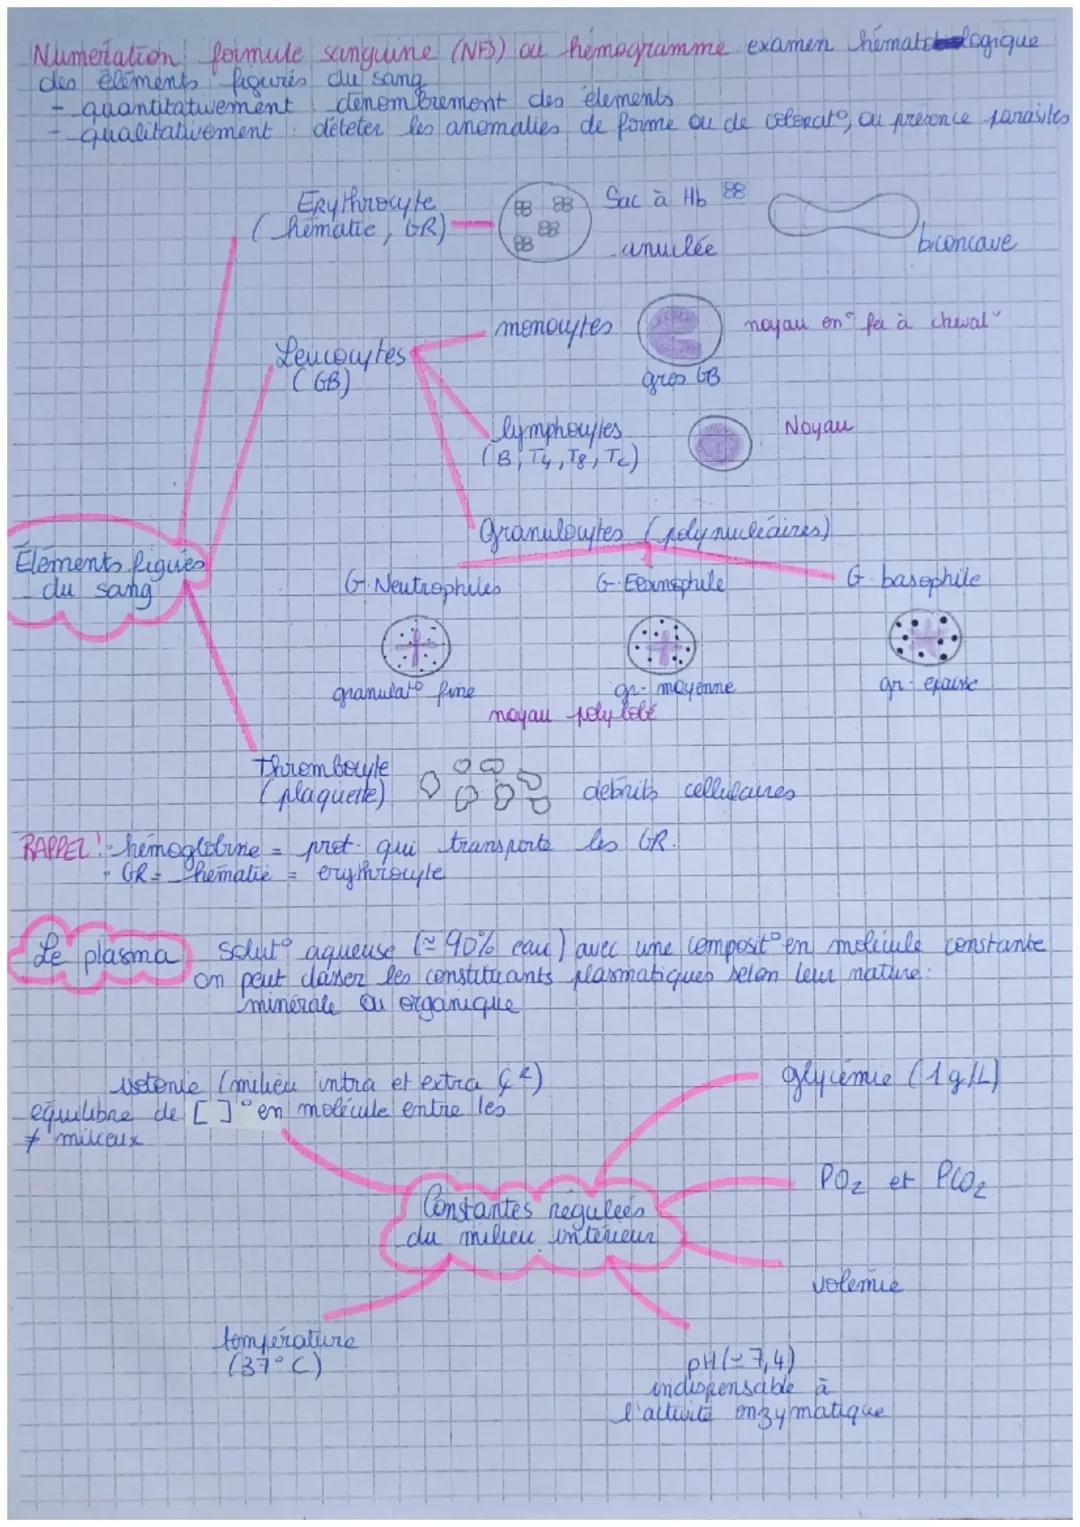 Numération formule sanguine (NFS) ou hémogramme examen hématologique
des éléments figurés du sang
- quantitativement dénombrement des éléments
- qualitativement : déteter les anomalies de forme ou de colorat°, ou présence parasites
Erythrocyte
(hématie, GR)
Sac à Hb
anuclée
biconcave
Leucocytes
(GB)
monocytes
noyau en "fer à cheval"
gros GB
lymphocytes
(B, T4, T8, Tc)
Noyau
Granulocytes (polynucléaires)
Eléments figués
du sang
G. Neutrophiles
G. Eosinophile
G. basophile
granulat° fine
gr. moyenne
gr. epaisse
noyau polylobé
Thrombocyte
(plaquette)
debrits cellulaires
RAPPEL! - hémoglobine = prot. qui transporte les GR.
- GR = hématie = erythrocyte
Le plasma
Solut° aqueuse (≃ 90% eau) avec une composit° en molécule constante
on peut classer les constituants plasmatiques selon leur nature:
minérale ou organique
isotonie (milieu intra et extra
équilibre de [ ]° en molécule entre les
≠ milieux
glycémie (1g/L)
PO2 et PCO2
Constantes régulées
du milieu intérieur
volémie
température
(37°C)
pH (≃ 7,4)
indispensable à
l'activité enzymatique